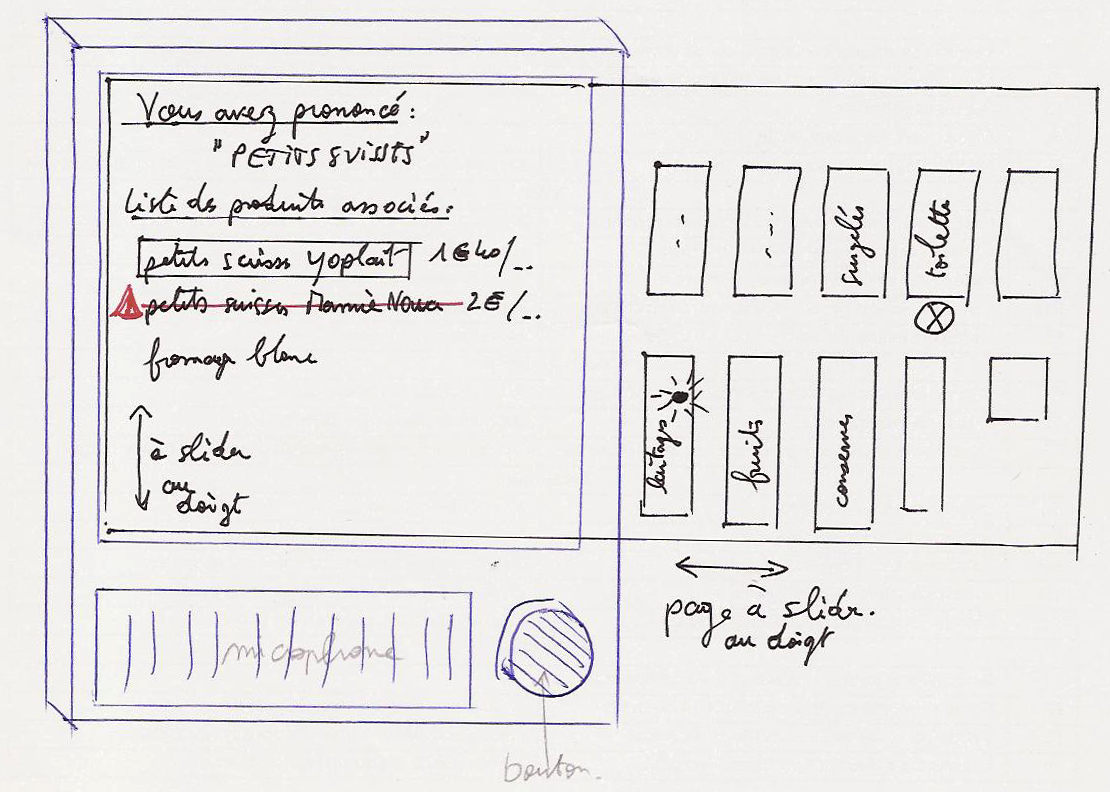 Vous avez prononcé :
"PETITS SUISSES"
Liste des produits associés :
petits suisses yoplait 1€40/..
petits suisses Mamie Nova 2€/..
fromage blanc
à slider
au
doigt
microphone
bouton.
surgelés
toilette
laitages
fruits
conserves
page à slider.
au doigt